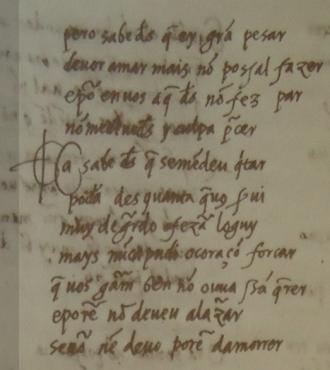 pero sabe d̃s q̃ ey grã pesar
de uor amar mais nõ poss al fazer
e põ en uos a q̃ d̃s nõ fez par
nõ me deuedˢ y culpa põer
Ca sabe d̃s q̃ se m end eu q̇tar
podã des quanta q̃ uos sui
muy de g̃rdo o fezã logu y
mays nũca pudi o coraçõ forcar
q̃ uos gãm ben nõ ouuessẽ a q̃rer
e porẽ nõ deueu a lazar
senõ nẽ deuo porẽ da morrer